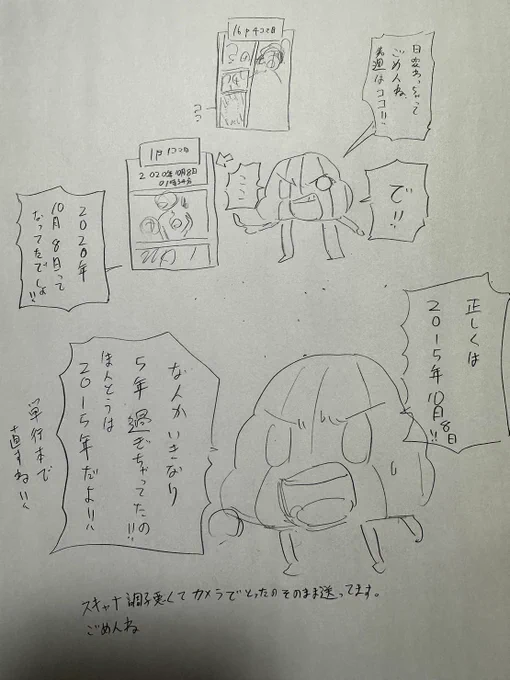 16P 4コマ目
日変わっちゃって
ごめんね、
先週はココ!!
ココ
で!!
ここ
1P 1コマ目
2020年10月8日
2020年
10月8日って
なってたでしょ!!
正しくは
2015年10月8日!!
なんかいきなり
5年過ぎちゃってたの!!!
ほんとうは
2015年だよ!!
単行本で
直すね!!
スキャナ調子悪くてカメラでとったのそのまま送ってます。
ごめんね